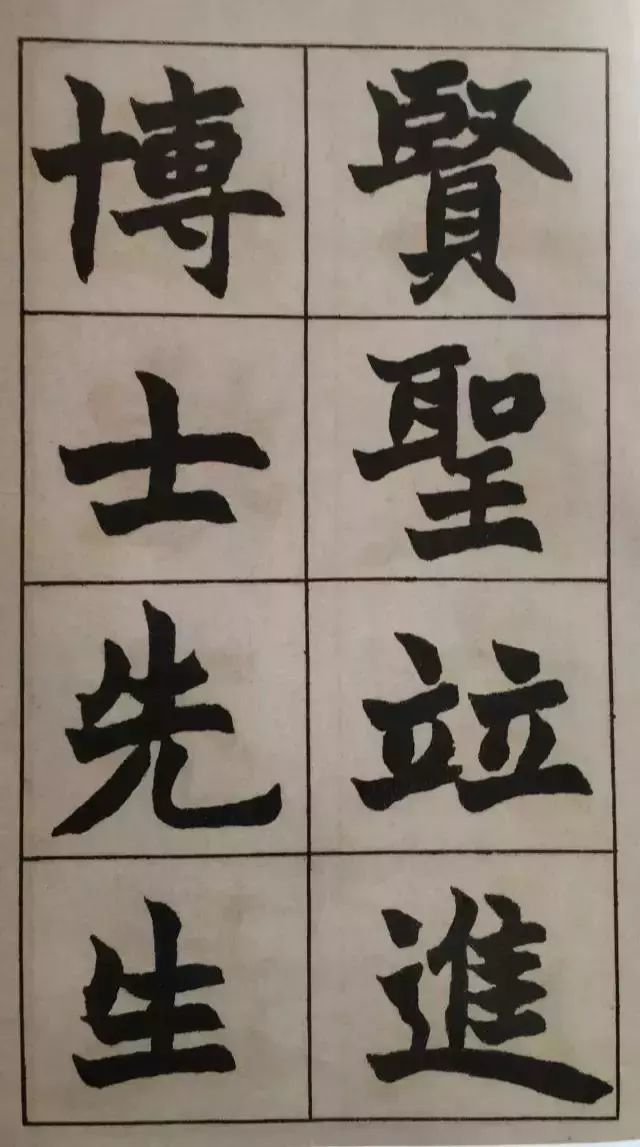 賢聖竝進
博士先生